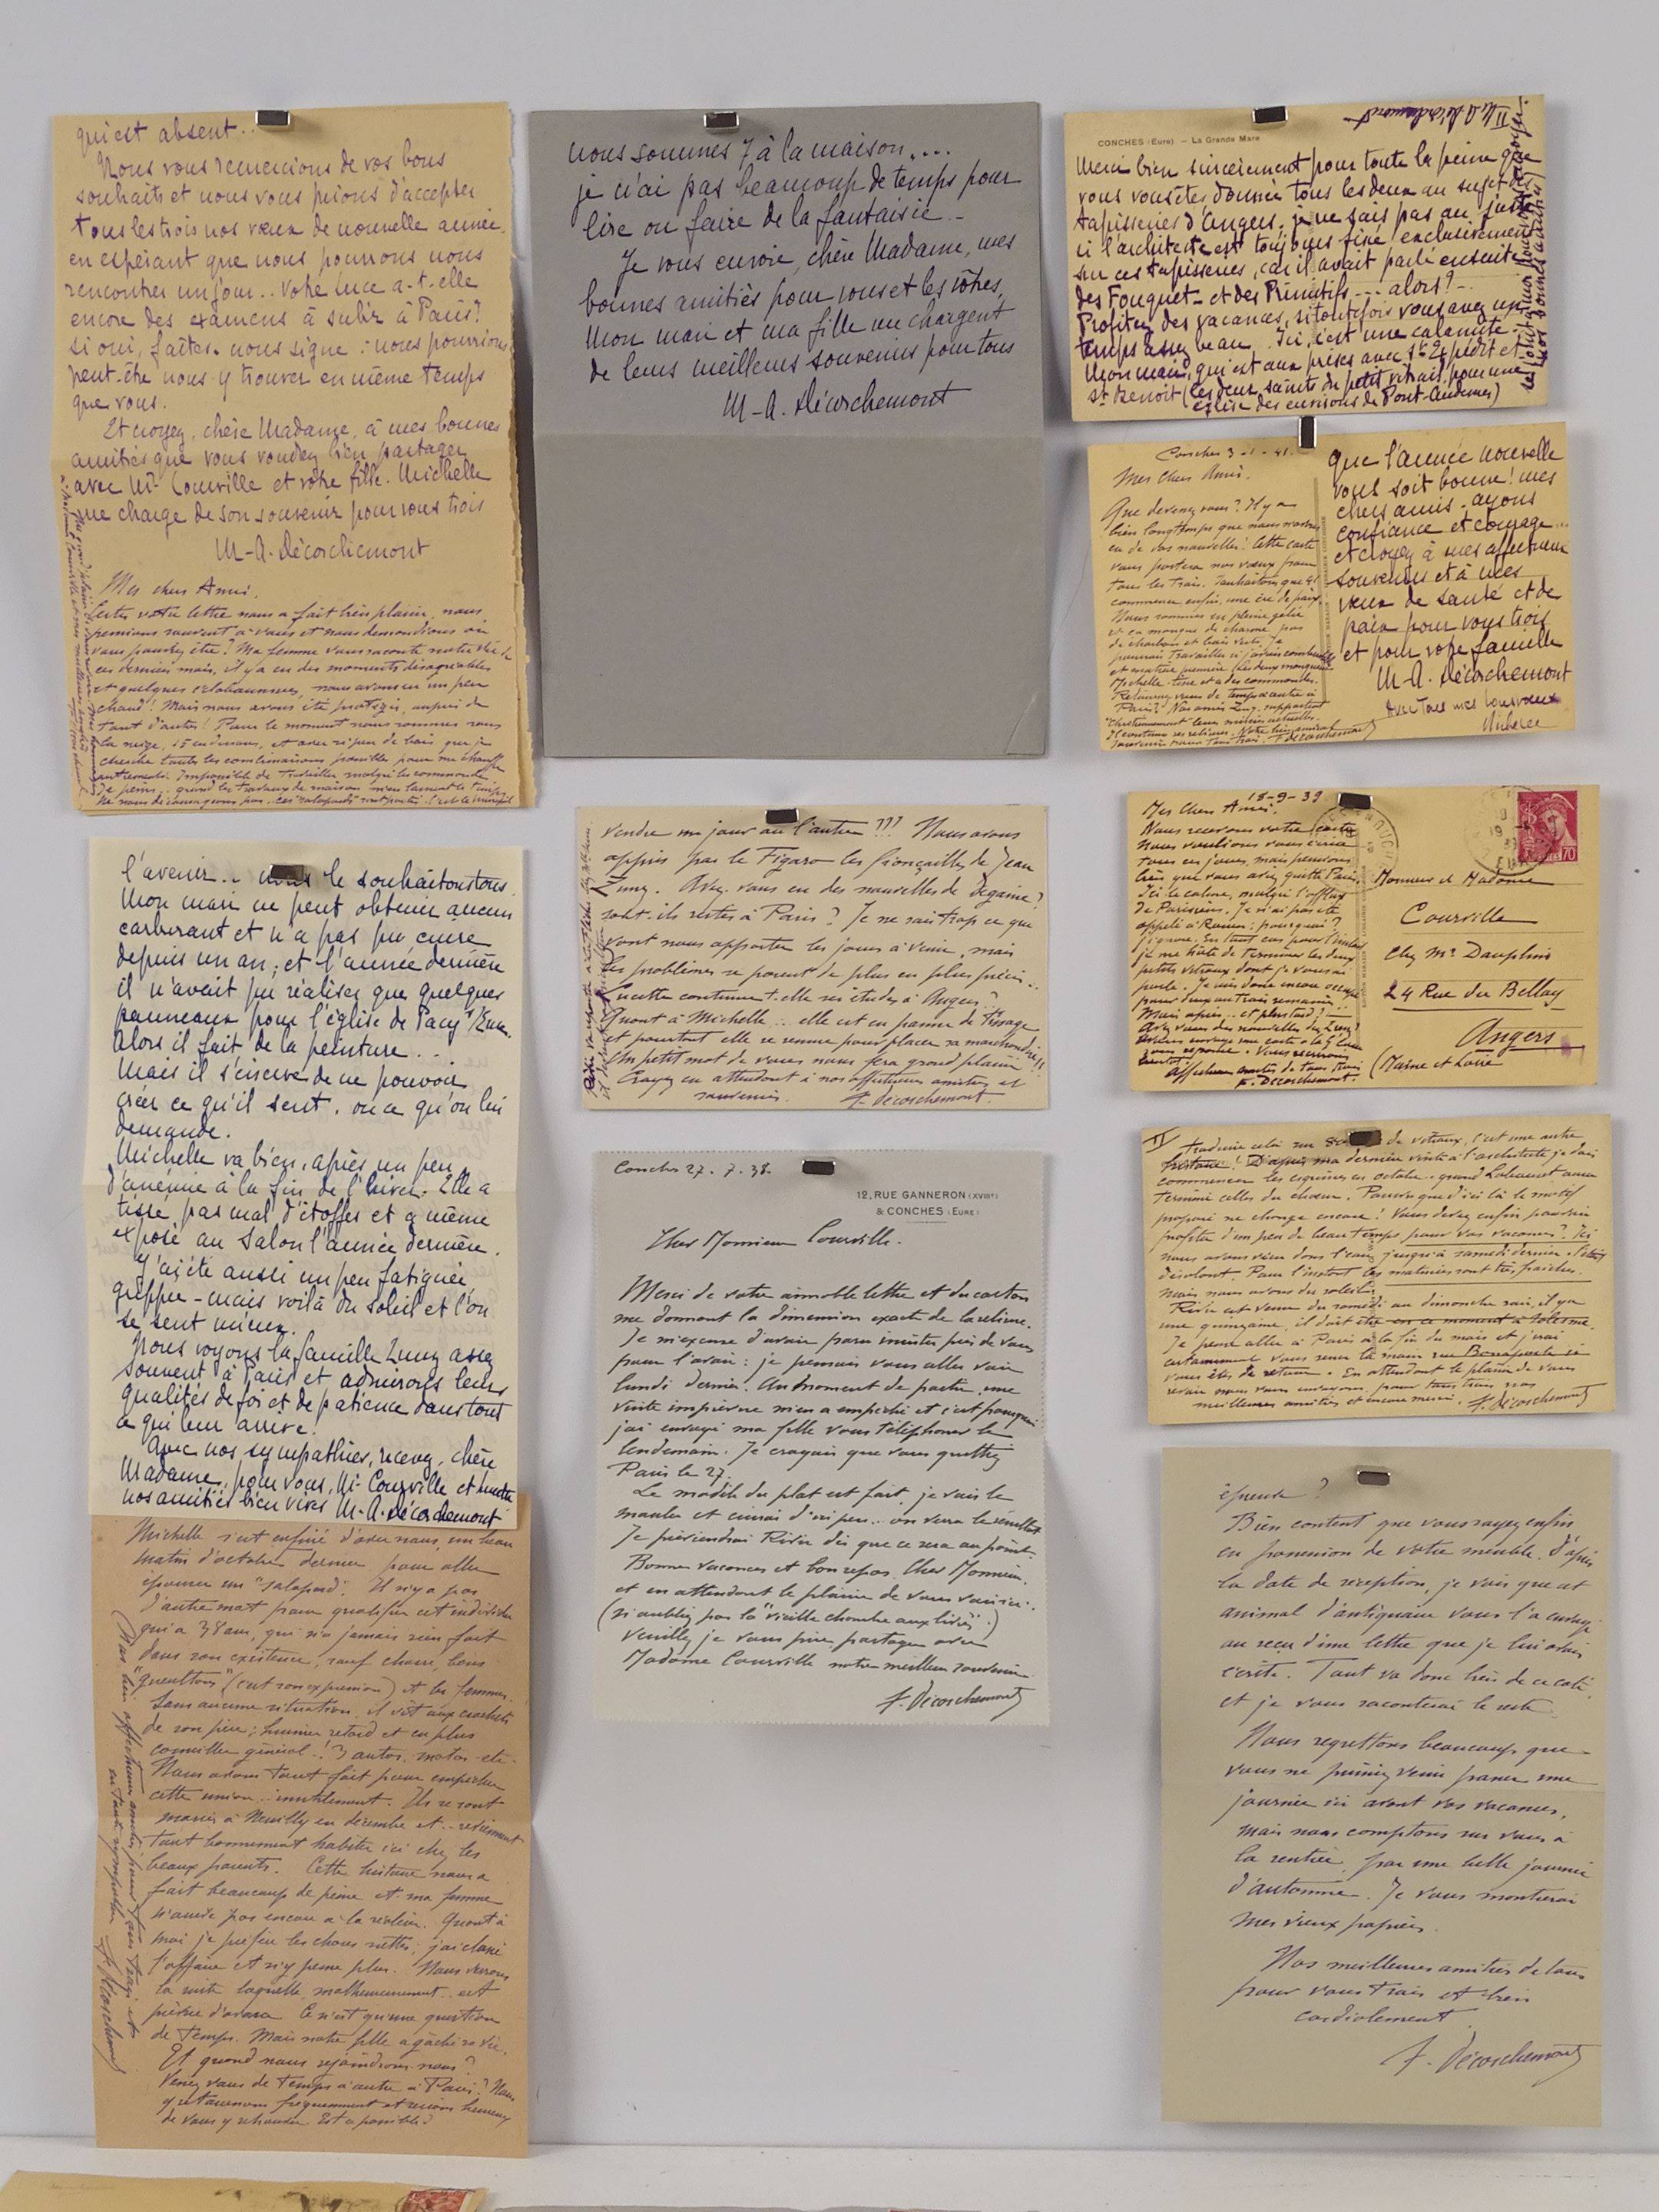 qui est absent..
Nous vous remercions de vos bons
souhaits et nous vous prions d'accepter
tous les trois nos vœux de nouvelle année,
en espérant que nous pourrons nous
rencontrer un jour.. Votre Luce a-t-elle
encore des examens à subir à Paris?
si oui, faites-nous signe : nous pourrions
peut-être nous y trouver en même temps
que vous.
Et croyez, chère Madame, à mes bonnes
amitiés que vous voudrez bien partager
avec Mr Courville et votre fille. Michelle
me charge de son souvenir pour vous trois
M-A. Décorchemont
Mes chers Amis,
votre lettre nous a fait bien plaisir, nous
pensions souvent à vous et nous demandions où
vous pouviez être? Ma femme vous raconte notre vie
ces derniers mois, il y a eu des moments désagréables
et quelques nous avons eu un peu
chaud! Mais nous avons été protégés, auprès de
tant d'autres! Pour le moment nous sommes sous
la neige, et avec si peu de bois que je
cherche toutes les combinaisons possibles pour me chauffer
autrement. Impossible de travailler malgré les commandes
Je peins.. quand les travaux de maison m'en laissent le temps
Ne nous décourageons pas..
l'avenir.. nous le souhaitons tous.
Mon mari ne peut obtenir aucun
carburant et n'a pas pu cuire
depuis un an, et l'année dernière
il n'avait pu réaliser que quelques
panneaux pour l'église de Pacy s/Eure.
Alors il fait de la peinture...
Mais il s'énerve de ne pouvoir
créer ce qu'il sent, ou ce qu'on lui
demande.
Michelle va bien, après un peu
d'anémie à la fin de l'hiver. Elle a
tissé pas mal d'étoffes et a même
exposé au Salon l'année dernière.
J'ai été aussi un peu fatiguée,
grippée - mais voilà du soleil et l'on
se sent mieux.
Nous voyons la famille Zunz assez
souvent à Paris et admirons leurs
qualités de foi et de patience dans tout
ce qui leur arrive.
Avec nos sympathies, recevez, chère
Madame, pour vous, Mr Courville et Lucette
nos amitiés bien vives M-A. Décorchemont
Michelle s'est enfuie d'avec nous, un beau
matin d'octobre dernier pour aller
épouser un "salopard". Il n'y a pas
d'autre mot pour qualifier cet individu
qui a 38 ans, qui n'a jamais rien fait
dans son existence, sauf chasse, bons
"gueultons" (c'est son expression) et les femmes.
Sans aucune situation, il vit aux crochets
de son père; huissier retiré et en plus
conseiller général! 3 autos, motos etc.
Nous avons tout fait pour empêcher
cette union.. inutilement. Ils se sont
mariés à Neuilly en décembre et.. reviennent
tout bonnement habiter ici chez les
beaux parents. Cette histoire nous a
fait beaucoup de peine et ma femme
n'arrive pas encore à la réaliser. Quant à
moi je préfère les choses nettes; j'ai classé
l'affaire et n'y pense plus. Nous verrons
la suite laquelle, malheureusement, est
prévue d'avance. Ce n'est qu'une question
de temps. Mais notre fille a gâché sa vie.
Et quand nous rejoindrons-nous?
Venez-vous de temps à autre à Paris? Nous
y retournons fréquemment et serions heureux
de vous y retrouver. Est-ce possible?
Bien affectueuses amitiés pour vous trois et
en toute sympathie F. Décorchemont
nous sommes 7 à la maison....
je n'ai pas beaucoup de temps pour
lire ou faire de la fantaisie..
Je vous envoie, chère Madame, mes
bonnes amitiés pour vous et les vôtres,
Mon mari et ma fille me chargent
de leurs meilleurs souvenirs pour tous
M-A. Décorchemont
vendre un jour ou l'autre!!! Nous avons
appris par le Figaro les fiançailles de Jean
Zunz. Avez-vous eu des nouvelles de Degaine?
sont-ils restés à Paris? Je ne sais trop ce que
vont nous apporter les jours à venir, mais
les problèmes se posent de plus en plus précis..
Lucette continue-t-elle ses études à Angers?
Quant à Michelle.. elle est en panne de tissage
et pourtant elle se remue pour placer sa marchandise!!
Un petit mot de vous nous fera grand plaisir
Croyez en attendant à nos affectueuses amitiés et
souvenirs. F. Décorchemont
Conches 27.7.38.
12, RUE GANNERON (XVIIIe)
& CONCHES (EURE)
Cher Monsieur Courville.
Merci de votre aimable lettre et du carton
me donnant la dimension exacte de la reliure.
Je m'excuse d'avoir paru insister près de vous
pour l'avoir : je pensais vous aller voir
lundi dernier. Au moment de partir, une
visite imprévue m'en a empêché et c'est pourquoi
j'ai envoyé ma fille vous téléphoner le
lendemain. Je croyais que vous quittiez
Paris le 27.
Le modèle du plat est fait, je vais le
mouler et cuirai d'ici peu.. on verra le résultat
Je préviendrai River dès que ce sera au point.
Bonnes vacances et bon repos, Cher Monsieur,
et en attendant le plaisir de vous voir ici..
(n'oubliez pas la "vieille chambre aux livres".)
veuillez je vous prie partager avec
Madame Courville notre meilleur souvenir
F. Décorchemont
CONCHES (Eure) — La Grande Mare
II M-A Décorchemont
Merci bien sincèrement pour toute la peine que
vous vous êtes donnée tous les deux au sujet des
tapisseries d'Angers. Je ne sais pas au juste
si l'architecte est toujours fixé exclusivement
sur ces tapisseries, car il avait parlé ensuite
des Fouquet- et des Primitifs... alors?-
Profitez des vacances, si toutefois vous avez un
temps assez beau. Ici, c'est une calamité.
Mon mari, qui est aux prises avec et
St Benoit (les deux saints du petit vitrail pour une
église des environs de Pont-Audemer)
Conches 3-1-41.
Mes chers Amis,
Que devenez-vous? Il y a
bien longtemps que nous n'avons
eu de vos nouvelles! Cette carte
vous portera nos vœux pour
tous les trois. Souhaitons que 41
commence enfin, une ère de paix.
Nous sommes en pleine gelée
et ça manque de charme pas
de charbon et bois vert. Je
pourrais travailler si j'avais combustible
et matière première (les deux manquent)
Michelle tisse et a des commandes.
Retournez-vous de temps à autre à
Paris? Nos amis Zunz supportent
chrétiennement leurs misères actuelles.
F. Décorchemont
que l'année nouvelle
vous soit bonne! mes
chers amis, ayons
confiance et courage..
et croyez à mes affectueux
souvenirs et à mes
vœux de santé et de
paix pour vous trois
et pour votre famille
M-A. Décorchemont
Avec tous mes bons vœux
Michelle
18-9-39
Mes Chers Amis,
Nous recevons votre carte
Nous voulions vous écrire
tous ces jours, mais pensions
bien que vous aviez quitté Paris.
Ici le calme, malgré l'afflux
de Parisiens. Je n'ai pas été
appelé à Rouen; pourquoi?
j'ignore. En tout cas pour l'instant
je me hâte de terminer les deux
petits vitraux dont je vous ai
parlé. Je suis donc encore occupé
pour deux ou trois semaines.
Mais après.. et plus tard?—
Avez-vous des nouvelles des Zunz?
Affectueuses amitiés de tous trois
F. Décorchemont.
Monsieur et Madame
Courville
Chez Mr Dauphin
24 Rue du Bellay
Angers
(Maine et Loire
70
II
traduire cela sur de vitraux, c'est une autre
histoire! D'après ma dernière visite à l'architecte je dois
commencer les esquisses en octobre.. quand Labouret aura
terminé celles du chœur. Pourvu que d'ici là le motif
proposé ne change encore! Vous devez enfin pouvoir
profiter d'un peu de beau temps pour vos vacances? Ici
nous avons vécu dans l'eau jusqu'à samedi dernier. C'était
désolant. Pour l'instant les matinées sont très fraîches.
mais nous avons du soleil.
River est venu du samedi au dimanche soir, il y a
une quinzaine, il doit être en ce moment à Solesmes.
Je pense aller à Paris à la fin du mois et j'irai
certainement vous serrer la main rue Bonaparte si
vous êtes de retour. En attendant le plaisir de vous
revoir nous vous envoyons pour tous trois nos
meilleures amitiés et encore merci. F. Décorchemont
épreuve?
Bien content que vous soyez enfin
en possession de votre meuble. D'après
la date de réception, je vois que cet
animal d'antiquaire vous l'a envoyé
au reçu d'une lettre que je lui avais
écrite. Tout va donc bien de ce côté
et je vous raconterai le reste.
Nous regrettons beaucoup que
vous ne puissiez venir passer une
journée ici avant vos vacances,
mais nous comptons sur vous à
la rentrée, par une belle journée
d'automne. Je vous montrerai
mes vieux papiers.
Nos meilleures amitiés de tous
pour vous trois et bien
cordialement
F. Décorchemont